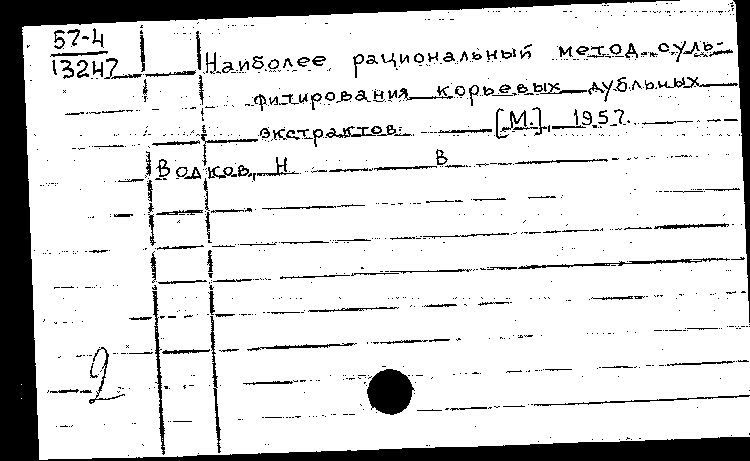 57-4
13247
Наиболее рациональный метод суль-
фитирования корьевых дубльных
экстрактов. [М.], 1957.
Волков, Н В
2